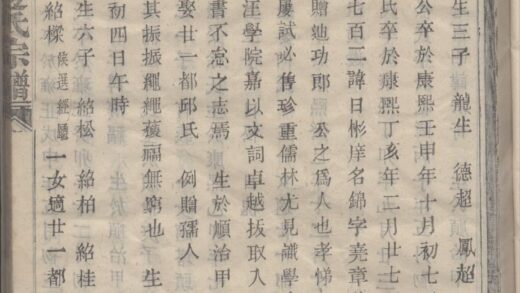 生三子 龍生 德超 鳳超
公卒於康熙壬申年十月初七
氏卒於康熙丁亥年二月廿七
七百二諱日彬庠名錦字堯章
贈迪功郎 公之爲人也孝悌
屢試必售珍重儒林尤見識學
汪學院嘉以文詞卓越拔取入
書不忘之志焉 生於順治甲
娶廿一都邱氏 例贈孺人
其振振繩繩獲福無窮也 生
初四日午時
生六子 紹松 紹柏 紹桂
紹樑 候選經歷 一女適廿一都
氏宗譜